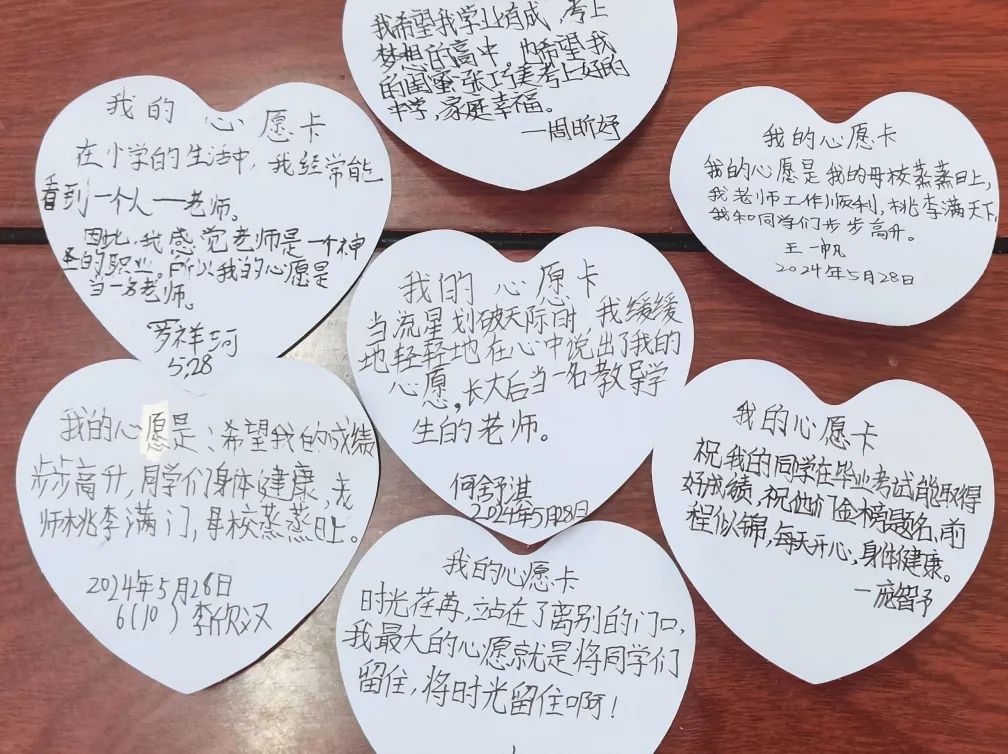 我希望我学业有成，考上
梦想的高中。也希望我
的闺蜜张巧美考上好的
中学，家庭幸福。
—周昕妤
我的 心愿卡
在小学的生活中，我经常能
看到一个人——老师。
因此，我感觉老师是一个神
圣的职业。所以我的心愿是
当一名老师。
罗祥珂
5,28
我的心愿卡
我的心愿是我的母校蒸蒸日上，
我老师工作顺利，桃李满天下
我和同学们步步高升。
王一帆
2024年5月28日
我的 心愿卡
当流星划破天际时，我缓缓
地轻轻地在心中说出了我的
心愿，长大后当一名教导学
生的老师。
何舒淇
2024年5月28日
我的心愿是：希望我的成绩
步步高升，同学们身体健康，老
师桃李满门，母校蒸蒸日上。
2024年5月28日
6(10) 李欣汉
我的心愿卡
祝我的同学在毕业考试能取得
好成绩，祝他们金榜题名，前
程似锦，每天开心，身体健康。
—庞智予
我的心愿卡
时光荏苒，立站在了离别的门口，
我最大的心愿就是将同学们
留住，将时光留住啊！